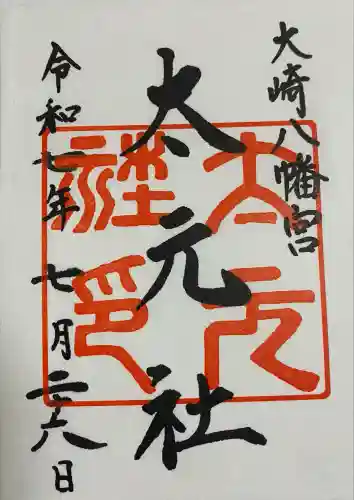 大崎八幡宮
太元社
令和七年 七月二十六日
太元社印